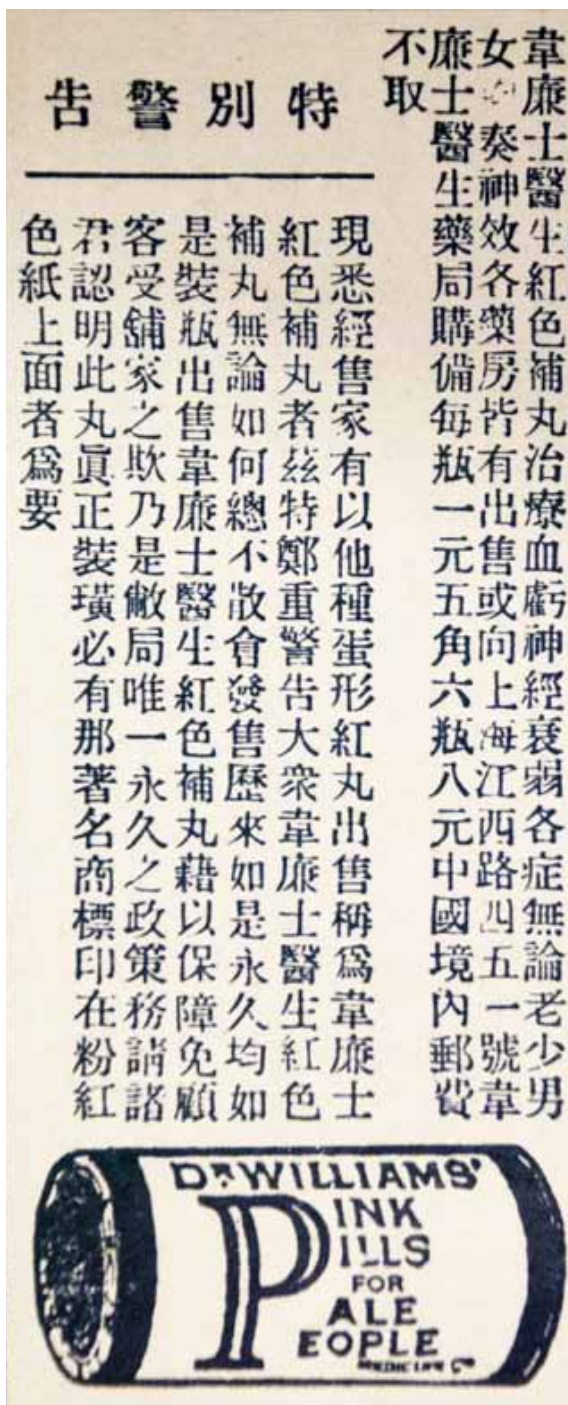 韋廉士醫生紅色補丸治療血虧神經衰弱各症無論老少男
女奏神效各藥房皆有出售或向上海江西路四五一號韋
廉士醫生藥局購備每瓶一元五角六瓶八元中國境內郵費
不取
特別警告
現悉經售家有以他種蛋形紅丸出售稱爲韋廉士
紅色補丸者茲特鄭重警告大衆韋廉士醫生紅色
補丸無論如何總不散會發售歷來如是永久均如
是裝瓶出售韋廉士醫生紅色補丸藉以保障免顧
客受舖家之欺乃是敝局唯一永久之政策務請諸
君認明此丸眞正裝璜必有那著名商標印在粉紅
色紙上面者爲要
DR WILLIAMS'
PINK
PILLS
FOR
PALE
PEOPLE